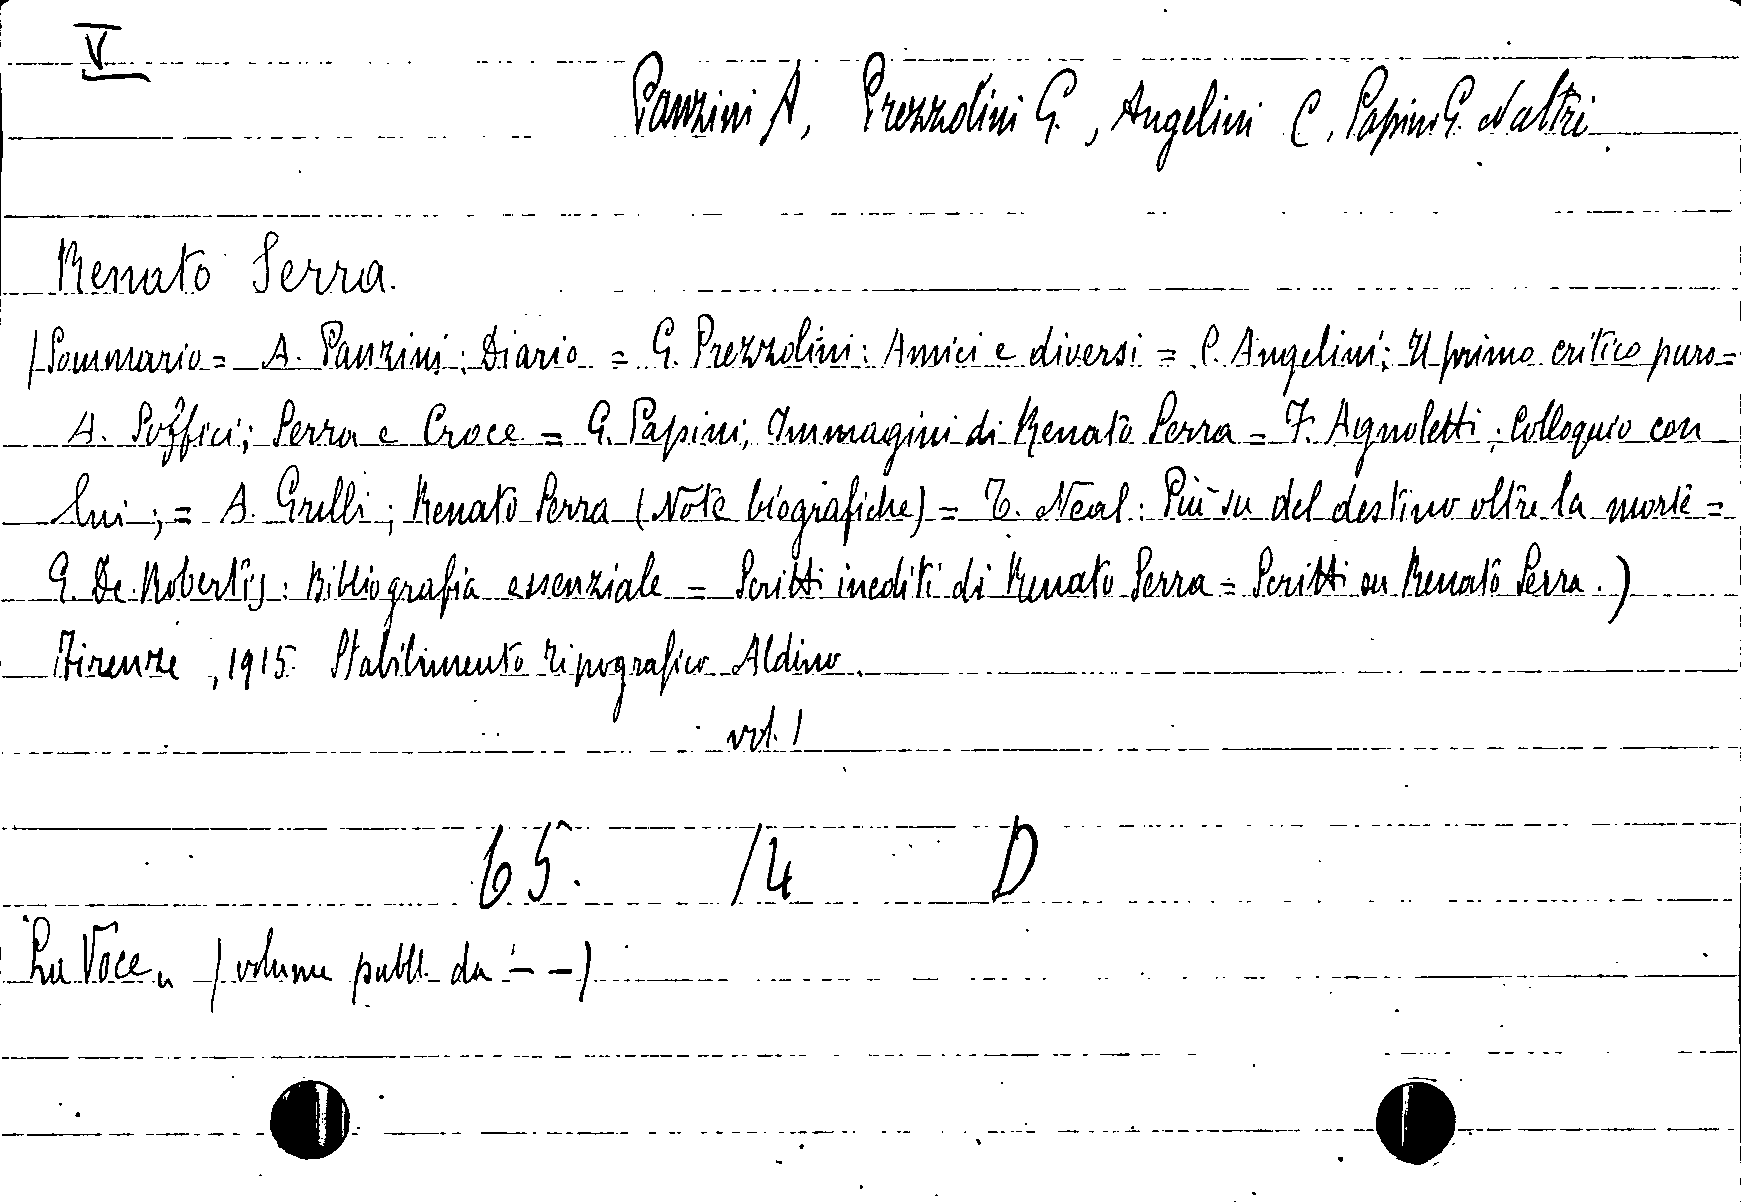 V
Panzini A, Prezzolini G., Angelini C, Papini G. ed altri.
Renato Serra.
(Sommario = A. Panzini: Diario = G. Prezzolini: Amici e diversi = C. Angelini; Il primo critico puro =
A. Soffici; Serra e Croce = G. Papini; Immagini di Renato Serra = F. Agnoletti; Colloquio con
lui; = A. Grilli; Renato Serra (Note biografiche) = T. Neal: Più su del destino oltre la morte =
G. De Robertis: Bibliografia essenziale = Scritti inediti di Renato Serra = Scritti su Renato Serra.)
Firenze, 1915. Stabilimento Tipografico Aldino.
vol. 1
65. 14 D
"La Voce" (volume pubbl. da — —)